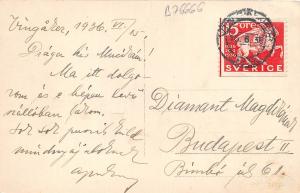 B76666
Vingåker, 1936. VI/15.
Drága kis Mucikám!
Ma itt dolgo-
zom és e képen levő
szállóban lakom.
Sok sok puszit küld
mindnyájatoknak
apuka
5 ÖRE
SVERIGE
Diamant Magdikának
Budapest II
Bimbó jól 61.